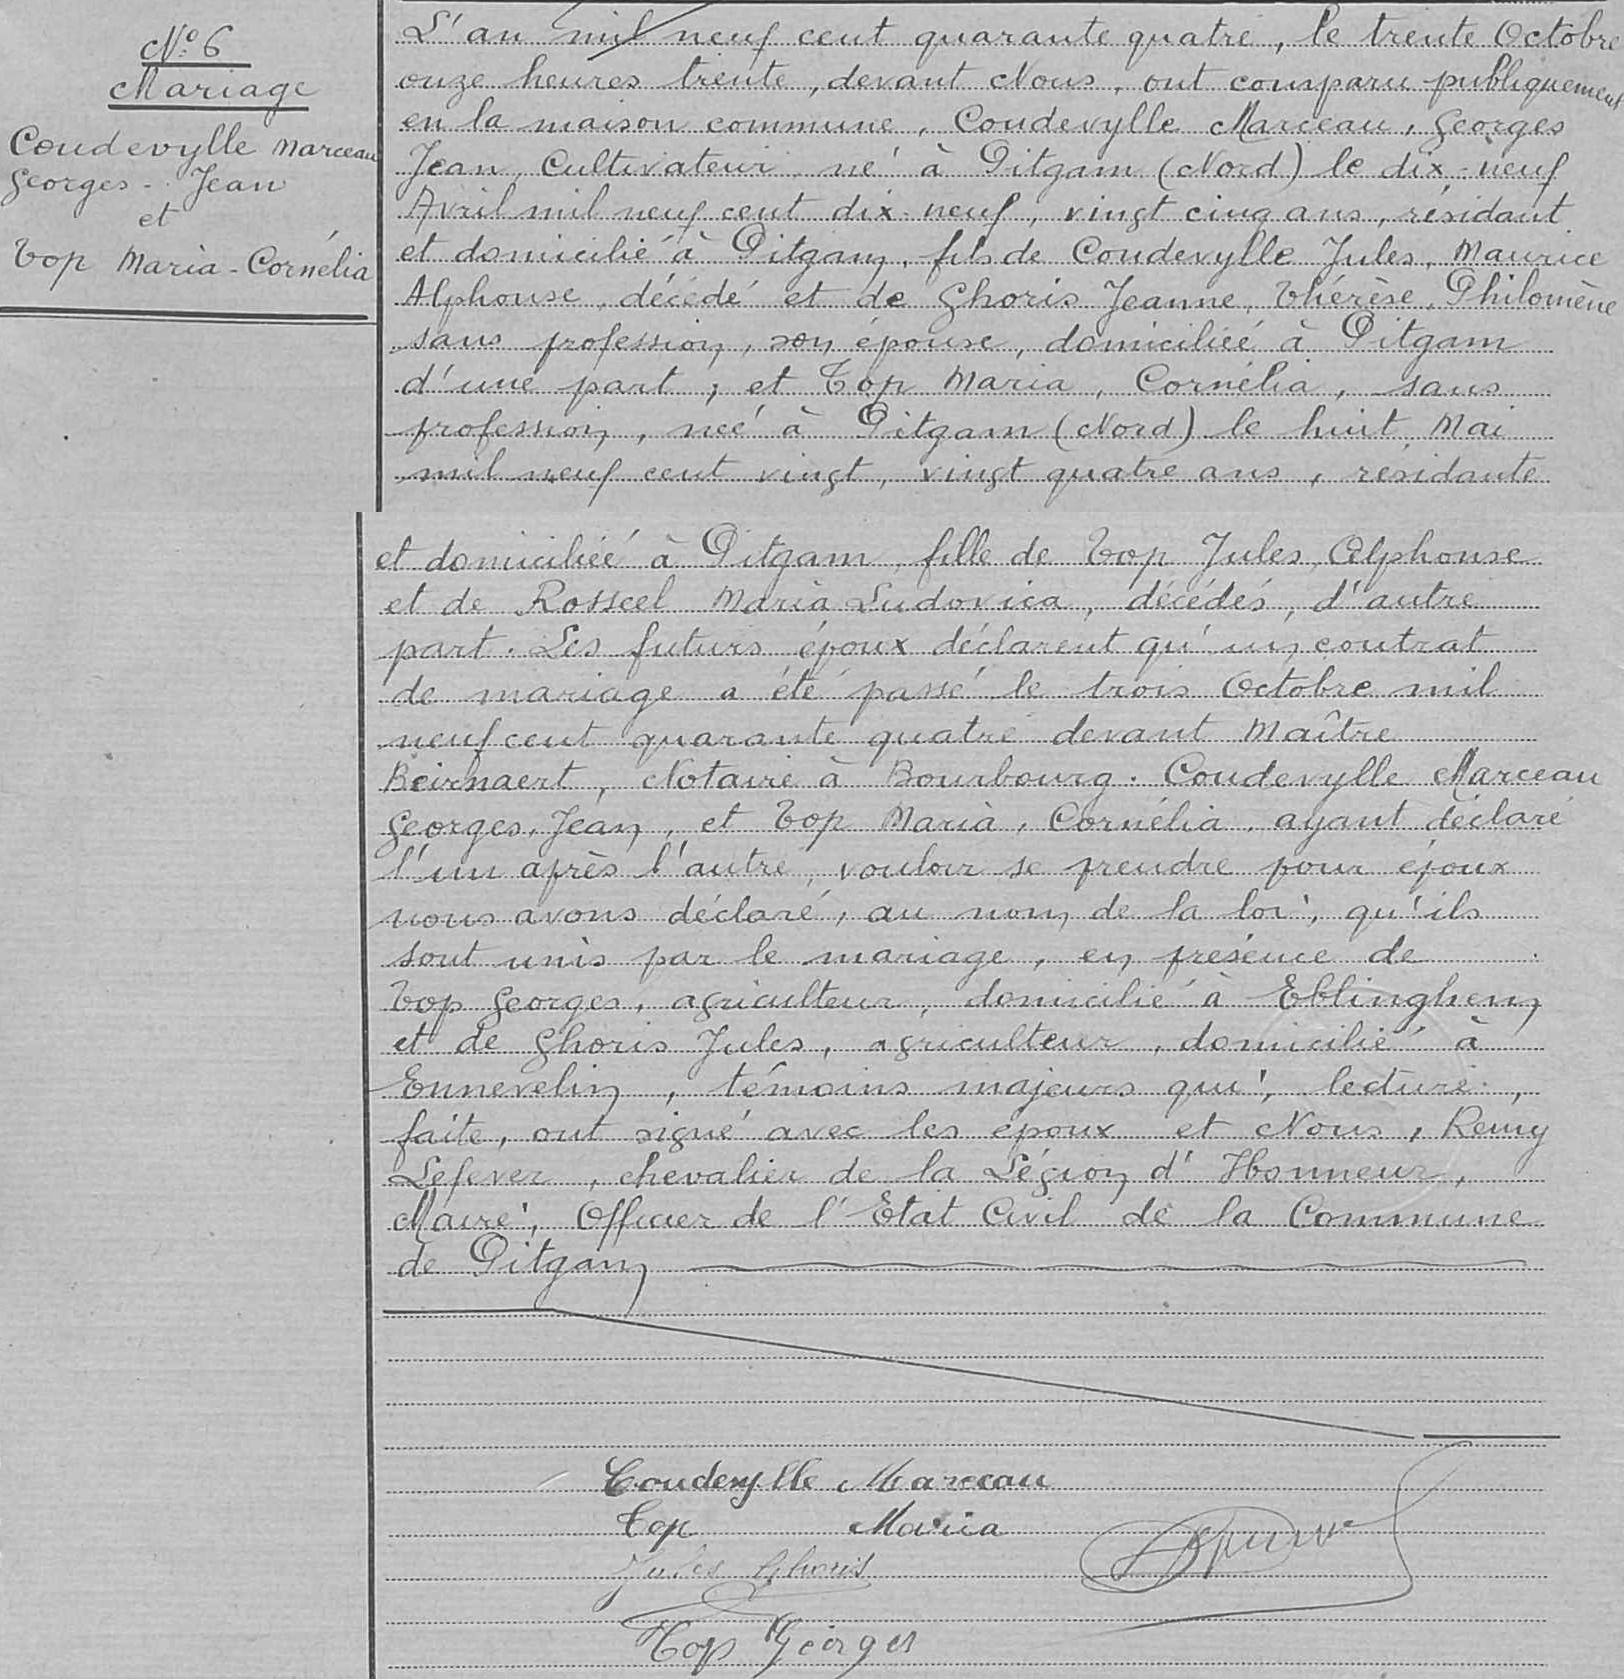 N° 6
Mariage
Coudevylle Marceau
Georges - Jean
et
Top Maria - Cornélia
L'an mil neuf cent quarante quatre, le trente Octobre
onze heures trente, devant Nous, ont comparu publiquement
en la maison commune, Coudevylle Marceau, Georges
Jean, Cultivateur, né à Pitgam (Nord) le dix-neuf
Avril mil neuf cent dix-neuf, vingt cinq ans, résidant
et domicilié à Pitgam, fils de Coudevylle Jules, Maurice
Alphonse, décédé et de Ghoris Jeanne, Thérèse, Philomène
sans profession, son épouse, domiciliée à Pitgam
d'une part ; et Top Maria, Cornélia, sans
profession, née à Pitgam (Nord) le huit Mai
mil neuf cent vingt, vingt quatre ans, résidante
et domiciliée à Pitgam, fille de Top Jules, Alphonse
et de Rosseel Maria Ludovica, décédés, d'autre
part. Les futurs époux déclarent qu'un contrat
de mariage a été passé le trois Octobre mil
neuf cent quarante quatre devant Maître
Beirnaert, Notaire à Bourbourg. Coudevylle Marceau
Georges, Jean, et Top Maria, Cornélia, ayant déclaré
l'un après l'autre, vouloir se prendre pour époux
nous avons déclaré, au nom de la loi, qu'ils
sont unis par le mariage, en présence de
Top Georges, agriculteur, domicilié à Eblinghem
et de Ghoris Jules, agriculteur, domicilié à
Ennevelin, témoins majeurs qui, lecture,
faite, ont signé avec les époux et Nous, Remy
Lefever, chevalier de la Légion d'Honneur,
Maire, Officier de l'Etat Civil de la Commune
de Pitgam
Coudevylle Marceau
Top Maria
Jules Ghoris
Top Georges